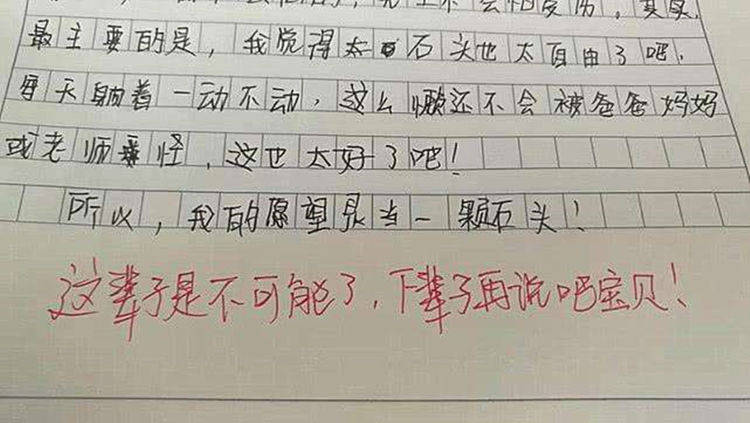 会受伤，其实，
最主要的是，我觉得太石头也太自由了吧，
每天躺着一动不动，这么懒还不会被爸爸妈妈
或老师责怪，这也太好了吧！
所以，我的愿望是当一颗石头！
这辈子是不可能了，下辈子再说吧宝贝！